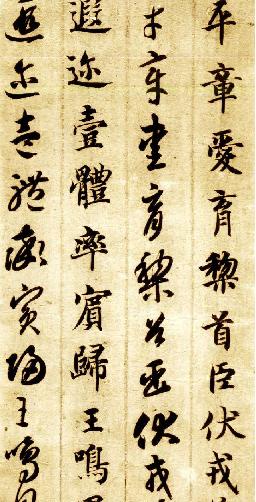 平章愛育黎首臣伏戎
平章愛育黎首臣伏戎
遐迩壹體率賓歸王鳴
遐迩壹體率賓歸王鳴